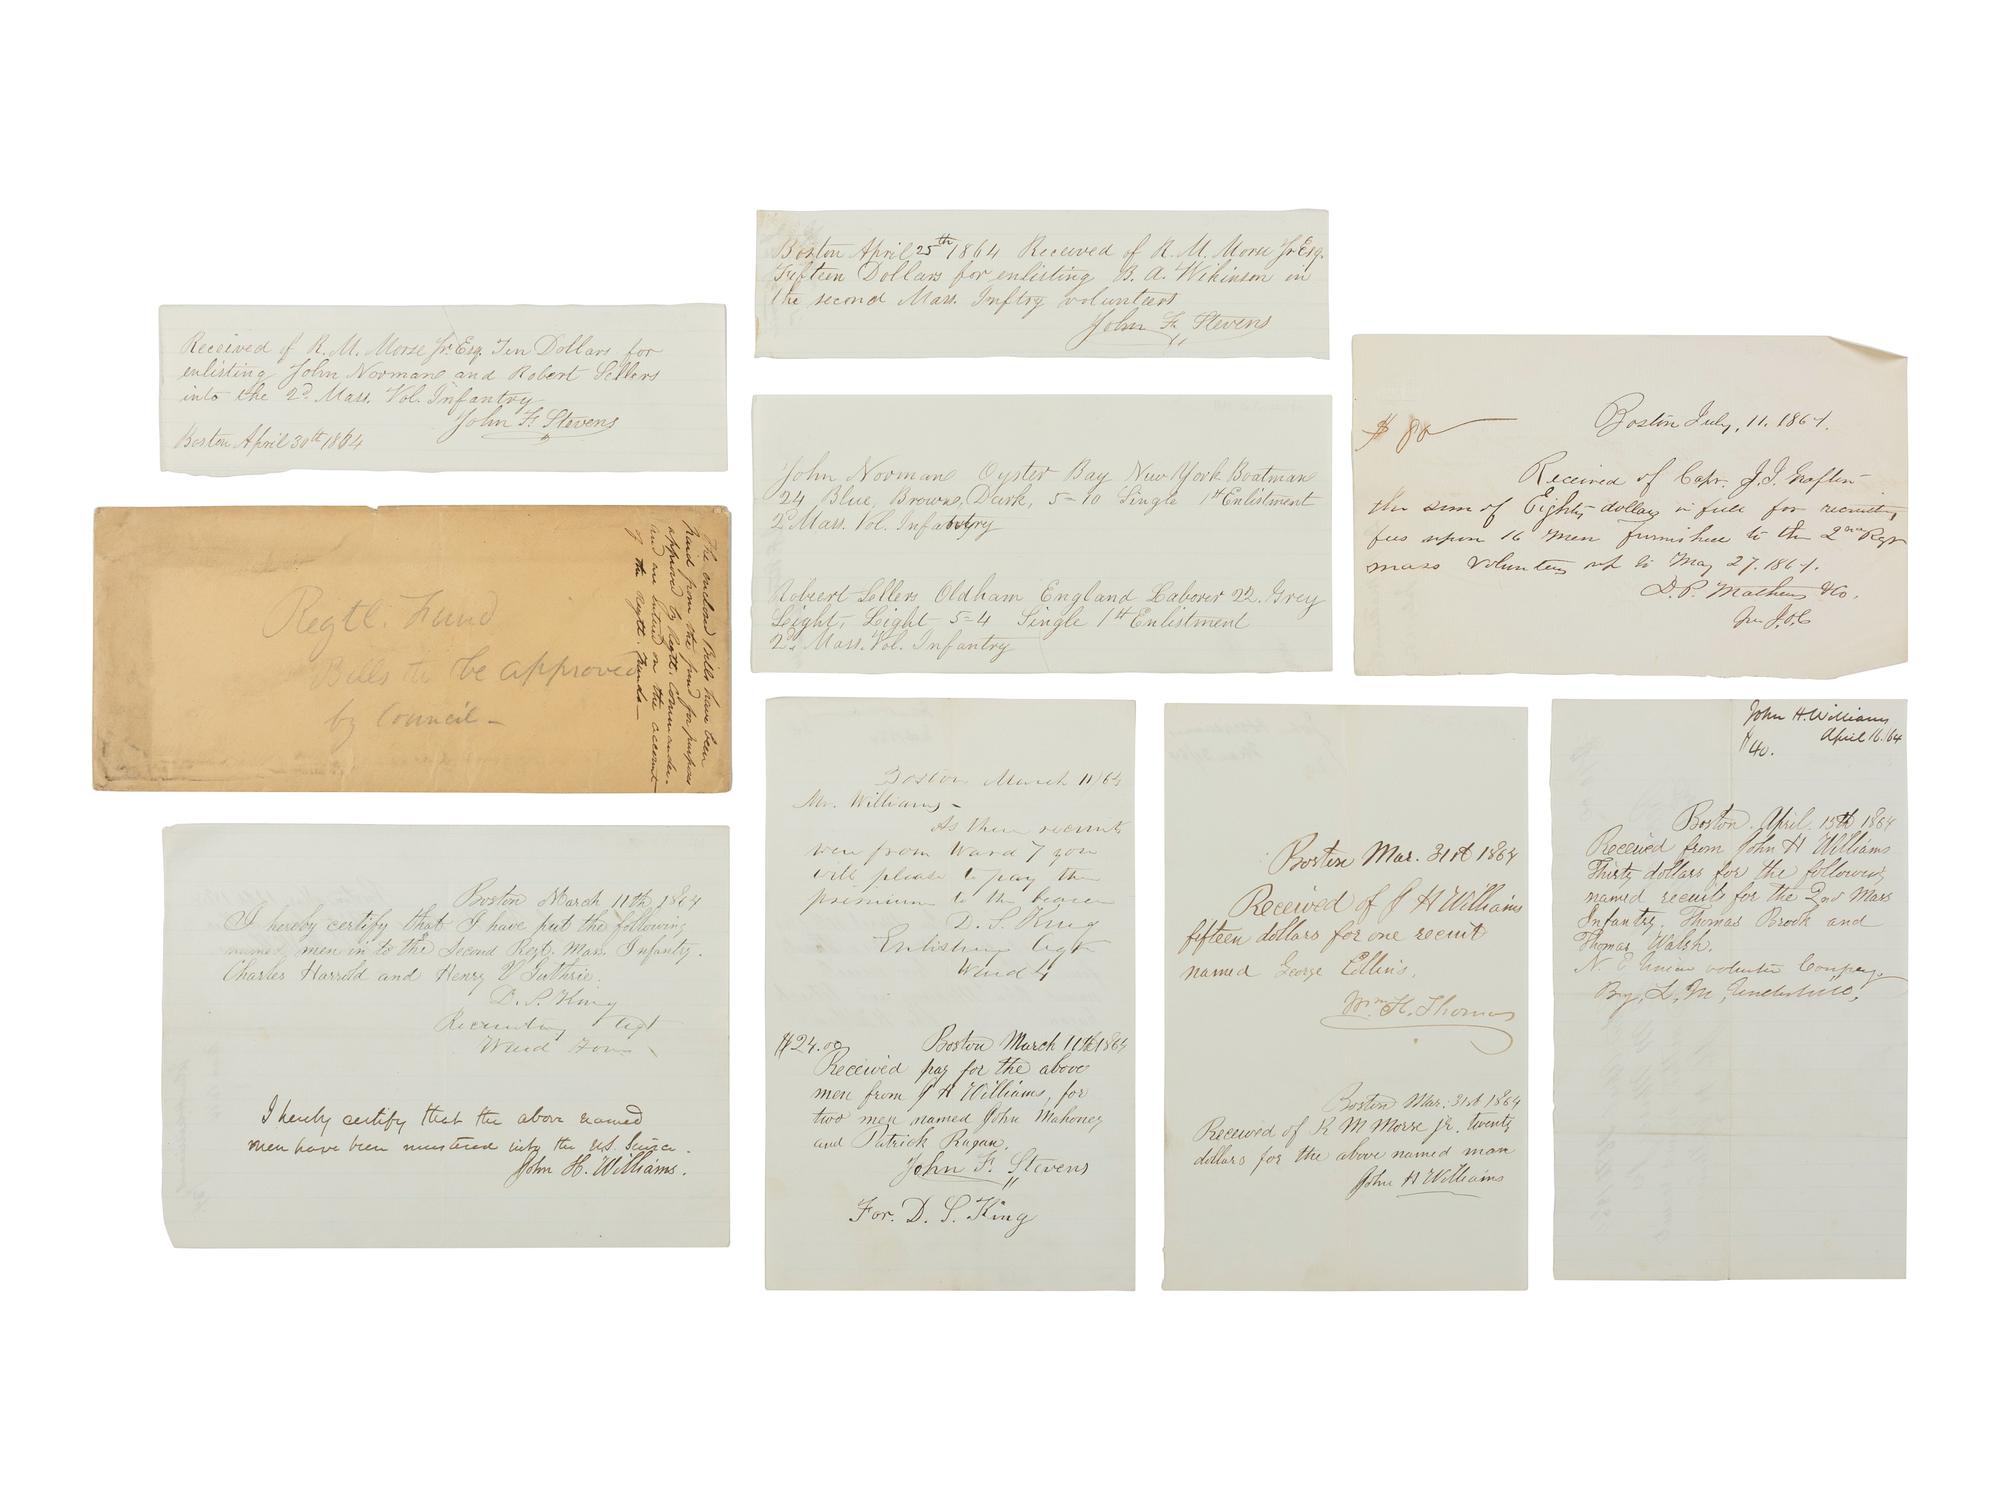 Received of R. M. Morse Jr. Esq. Ten Dollars for
enlisting John Norman and Robert Sellers
into the 2d. Mass. Vol. Infantry
John F. Stevens
Boston April 30th 1864
Boston April 25th 1864 Received of R. M. Morse Jr Esq.
Fifteen Dollars for enlisting B. A. Wilkinson in
the second Mass. Inftry volunteers
John F. Stevens
John Norman Oyster Bay New York Boatman
24 Blue, Brown, Dark, 5-10 Single 1st Enlistment
2d Mass. Vol. Infantry
Robert Sellers Oldham England Laborer 22. Grey
Light, Light 5-4 Single 1st Enlistment
2d. Mass. Vol. Infantry
$ 80
Boston July, 11. 1864.
Received of Capt. J. I. Grafton
the sum of Eighty dollars in full for recruiting
fees upon 16 men furnished to the 2nd Regt
mass Volunteers up to May 27. 1864.
D. P. Mathews & Co.
Regtl. Fund
Bills to be approved
by Council -
The enclosed Bills have been
paid from the fund for purposes
approved by Regtl. Commander.
and are entered on the account
of the Regtl. Funds -
Boston March 11th 1864
I hereby certify that I have put the following
named men in to the Second Regt. Mass. Infantry.
Charles Harrold and Henry V Guthrie.
D. S. King
Recruiting Agt
Ward Four
I hereby certify that the above named
men have been mustered into the U.S. Service.
John H. Williams.
Boston March 11/64
Mr. Williams -
As these recruits
were from Ward 7 you
will please to pay the
premium to the bearer
D. S. King
Enlisting Agt
Ward 4
$24.00 Boston March 11th 1864
Received pay for the above
men from J H Williams, for
two men named John Mahoney
and Patrick Ragan.
John F. Stevens
For. D. S. King
Boston Mar. 31st 1864
Received of J H Williams
fifteen dollars for one recruit
named George Collins.
Wm. H. Thomas
Boston Mar. 31st 1864
Received of R M Morse jr. twenty
dollars for the above named man
John H Williams
John H. Williams
April 16. 64
$40.
Boston. April. 15th 1864
Received from John H Williams
Thirty dollars for the following
named recruits for the 2nd Mass
Infantry. Thomas Brook and
Thomas Walsh.
N. E Union volunteer Company.
By, L. M, Underhill,